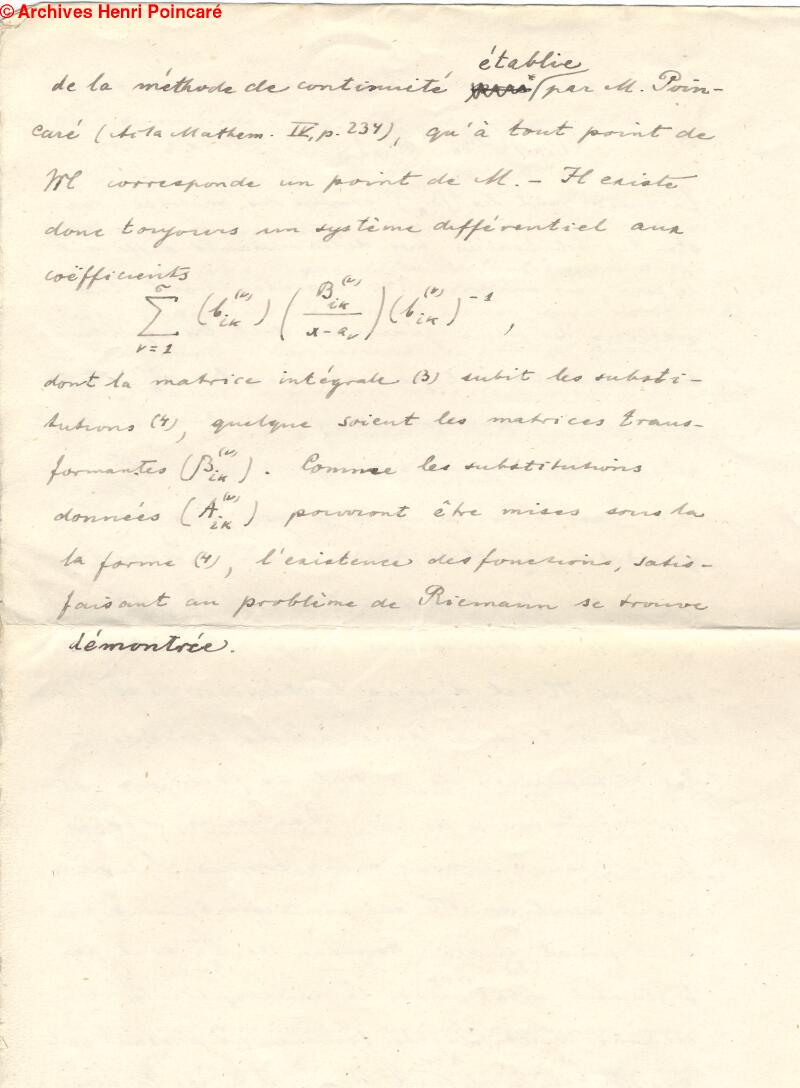 © Archives Henri Poincaré
établie
de la méthode de continuité par M. Poin-
caré (Acta Mathem. IV, p. 234), qu'à tout point de
M corresponde un point de M. – Il existe
donc toujours un système différentiel aux
coëfficients
\sum_{\nu=1}^{\sigma} (b_{ik}^{(\nu)}) \left( \frac{B_{ik}^{(\nu)}}{x-a_\nu} \right) (b_{ik}^{(\nu)})^{-1} ,
dont la matrice intégrale (3) subit les substi-
tutions (4), quelque soient les matrices trans-
formantes (B_{ik}^{(\nu)}). Comme les substitutions
données (A_{ik}^{(\nu)}) pouvront être mises sous la
la forme (4), l'existence des fonctions, satis-
faisant au problème de Riemann se trouve
démontrée.